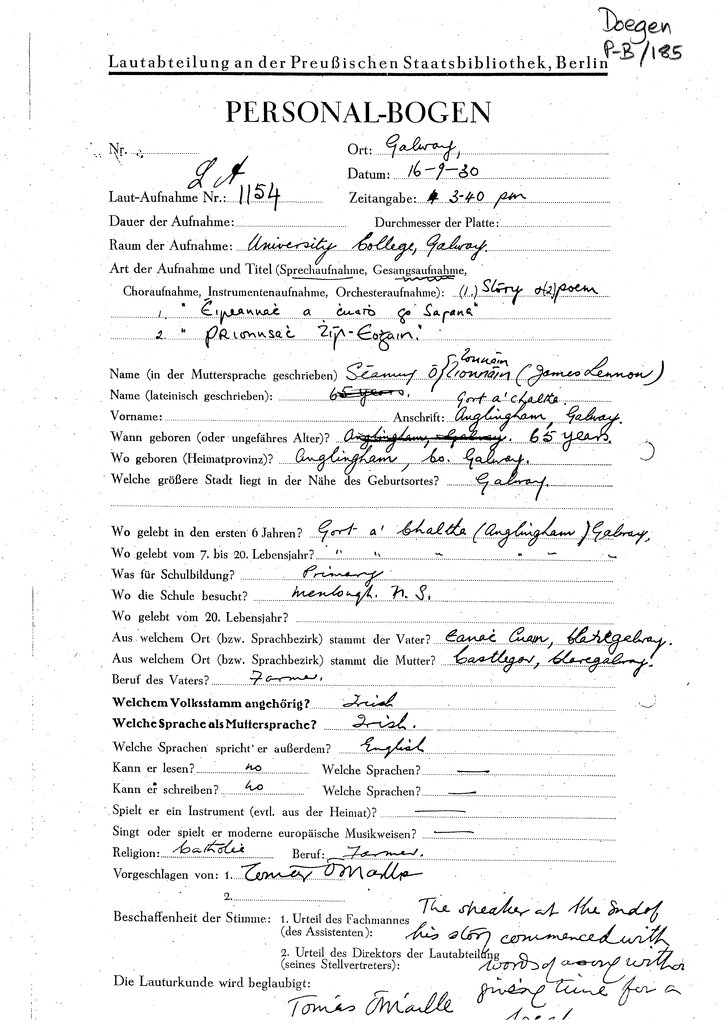 Doegen
P-B/185
Lautabteilung an der Preußischen Staatsbibliothek, Berlin
PERSONAL-BOGEN
Nr.
Ort: Galway,
Datum: 16-9-30
LA
Laut-Aufnahme Nr.: 1154
Zeitangabe: 3-40 pm
Dauer der Aufnahme:
Durchmesser der Platte:
Raum der Aufnahme: University College, Galway.
Art der Aufnahme und Titel (Sprechaufnahme, Gesangsaufnahme,
Choraufnahme, Instrumentenaufnahme, Orchesteraufnahme): (1.) Story (2) poem
1. "Éireannaċ a ċuaiḋ go Sapana"
2. "Prionnsaċ Ṫír-Eoġain."
Name (in der Muttersprache geschrieben) Séamus Ó (James Lennon)
Name (lateinisch geschrieben): 65 years.
Gort a' Chaltha
Vorname:
Anschrift: Anglingham, Galway.
Wann geboren (oder ungefähres Alter)? Anglingham, Galway. 65 years.
Wo geboren (Heimatprovinz)? Anglingham, Co. Galway.
Welche größere Stadt liegt in der Nähe des Geburtsortes? Galway.
Wo gelebt in den ersten 6 Jahren? Gort a' Chaltha (Anglingham) Galway.
Wo gelebt vom 7. bis 20. Lebensjahr? " " " " " "
Was für Schulbildung? Primary
Wo die Schule besucht? Menlough. N. S.
Wo gelebt vom 20. Lebensjahr?
Aus welchem Ort (bzw. Sprachbezirk) stammt der Vater? Eanaċ Cuan, Claregalway.
Aus welchem Ort (bzw. Sprachbezirk) stammt die Mutter? Castlegar, Claregalway.
Beruf des Vaters? Farmer.
Welchem Volksstamm angehörig? Irish
Welche Sprache als Muttersprache? Irish.
Welche Sprachen spricht er außerdem? English
Kann er lesen? no Welche Sprachen? —
Kann er schreiben? no Welche Sprachen? —
Spielt er ein Instrument (evtl. aus der Heimat)? —
Singt oder spielt er moderne europäische Musikweisen? —
Religion: Catholic Beruf: Farmer.
Vorgeschlagen von: 1. Tomás Ó Máille
2.
Beschaffenheit der Stimme: 1. Urteil des Fachmannes
(des Assistenten):
2. Urteil des Direktors der Lautabteilung
(seines Stellvertreters):
The speaker at the end of
his story commenced with
words of a song without
giving time for a
Die Lauturkunde wird beglaubigt:
Tomás Ó Máille